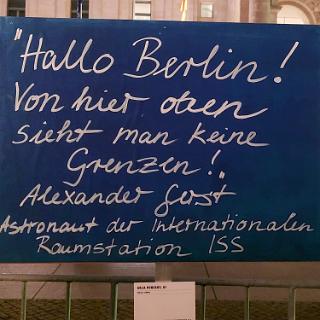 "Hallo Berlin!
Von hier oben
sieht man keine
Grenzen!"
Alexander Gerst
Astronaut der Internationalen
Raumstation ISS